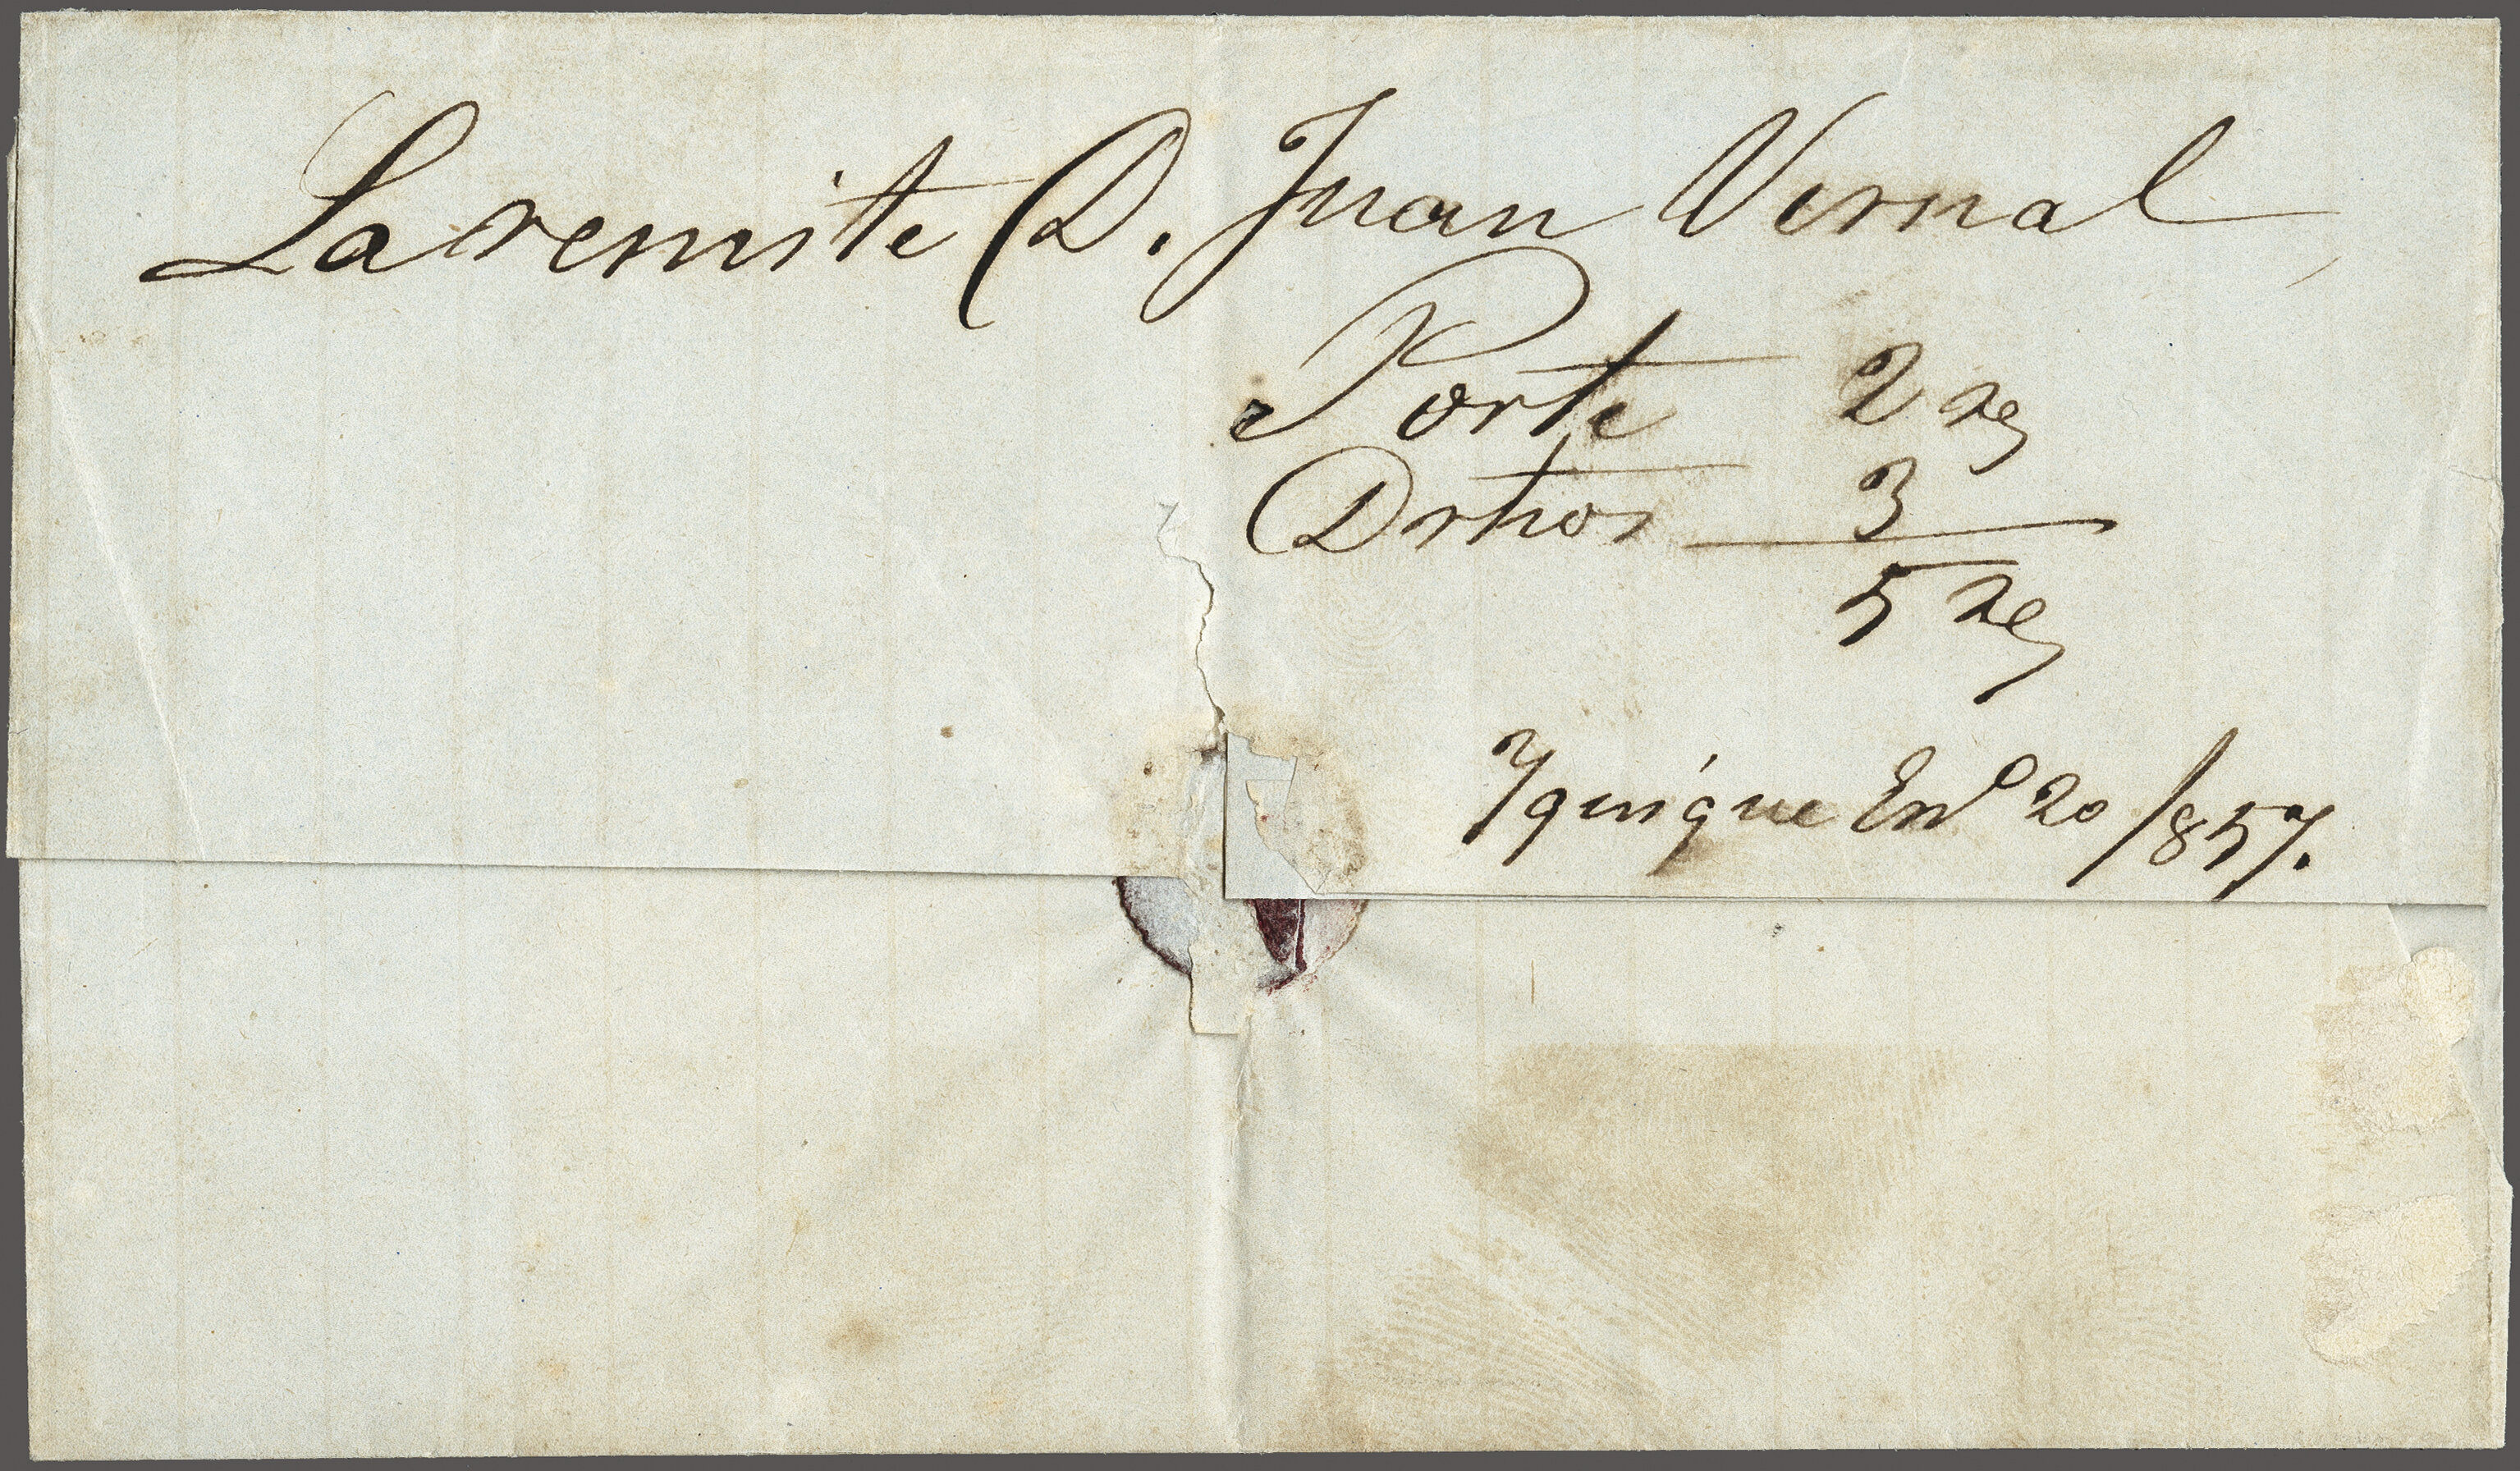 La remite D. Juan Vernal
Porte 2 rs
Drhos 3
5 rs
Yquique En.º 20/857.